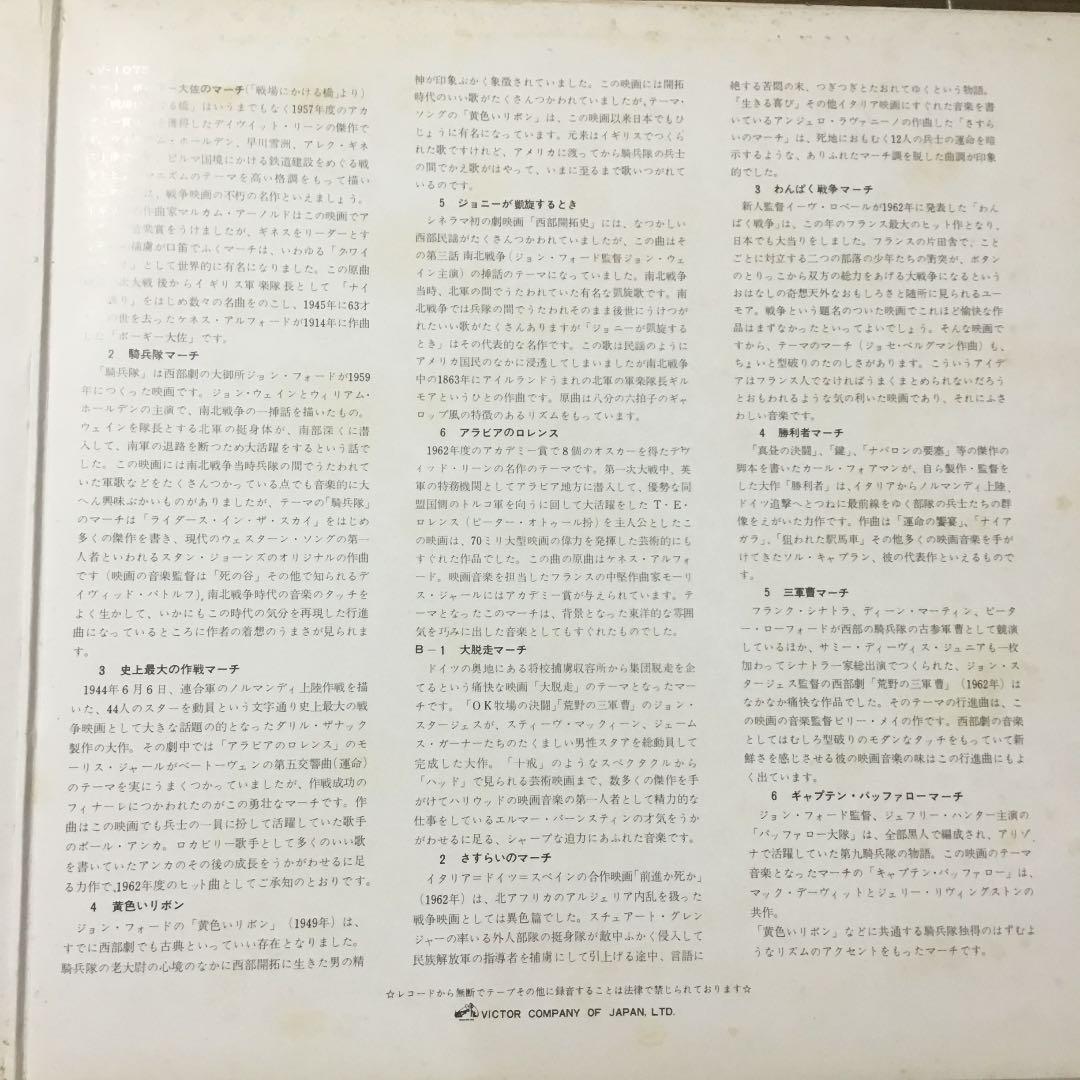 V-1073
大佐のマーチ(「戦場にかける橋」より)
る橋」はいうまでもなく1957年度のアカ
獲得したデイヴィット・リーンの傑作で
ム・ホールデン、早川雪洲、アレク・ギネ
ビルマ国境にかける鉄道建設をめぐる戦
マニズムのテーマを高い格調をもって描い
は、戦争映画の不朽の名作といえましょう。
作曲家マルカム・アーノルドはこの映画でア
音楽賞をうけましたが、ギネスをリーダーとす
捕虜が口笛でふくマーチは、いわゆる「クワイ
」として世界的に有名になりました。この原曲
次大戦後からイギリス軍楽隊長として「ナイ
り」をはじめ数々の名曲をのこし、1945年に63才
の世を去ったケネス・アルフォードが1914年に作曲
した「ボーギー大佐」です。
2 騎兵隊マーチ
「騎兵隊」は西部劇の大御所ジョン・フォードが1959
年につくった映画です。ジョン・ウェインとウィリアム・
ホールデンの主演で、南北戦争の一挿話を描いたもの。
ウェインを隊長とする北軍の挺身体が、南部深くに潜
入して、南軍の退路を断つため大活躍をするという話で
した。この映画には南北戦争当時兵隊の間でうたわれて
いた軍歌などをたくさんつかっている点でも音楽的に大
へん興味ぶかいものがありましたが、テーマの「騎兵隊」
のマーチは「ライダース・イン・ザ・スカイ」をはじめ
多くの傑作を書き、現代のウェスターン・ソングの第一
人者といわれるスタン・ジョーンズのオリジナルの作曲
です(映画の音楽監督は「死の谷」その他で知られるデ
イヴィッド・バトルフ),南北戦争時代の音楽のタッチを
よく生かして、いかにもこの時代の気分を再現した行進
曲になっているところに作者の着想のうまさが見られま
す。
3 史上最大の作戦マーチ
1944年6月6日、連合軍のノルマンディ上陸作戦を描
いた、44人のスターを動員という文字通り史上最大の戦
争映画として大きな話題の的となったダリル・ザナック
製作の大作。その劇中では「アラビアのロレンス」のモ
ーリス・ジャールがベートーヴェンの第五交響曲(運命)
のテーマを実にうまくつかっていましたが、作戦成功の
フィナーレにつかわれたのがこの勇壮なマーチです。作
曲はこの映画でも兵士の一員に扮して活躍していた歌手
のポール・アンカ。ロカビリー歌手として多くのいい歌
を書いていたアンカのその後の成長をうかがわせるに足
る力作で、1962年度のヒット曲としてご承知のとおりです。
4 黄色いリボン
ジョン・フォードの「黄色いリボン」(1949年)は、
すでに西部劇でも古典といっていい存在となりました。
騎兵隊の老大尉の心境のなかに西部開拓に生きた男の精
神が印象ぶかく象徴されていました。この映画には開拓
時代のいい歌がたくさんつかわれていましたが、テーマ・
ソングの「黄色いリボン」は、この映画以来日本でもひ
じょうに有名になっています。元来はイギリスでつくら
れた歌ですけれど、アメリカに渡ってから騎兵隊の兵士
の間でかえ歌がはやって、いまに至るまで歌いつがれて
いるのです。
5 ジョニーが凱旋するとき
シネラマ初の劇映画「西部開拓史」には、なつかしい
西部民謡がたくさんつかわれていましたが、この曲はそ
の第三話 南北戦争(ジョン・フォード監督ジョン・ウェ
イン主演)の挿話のテーマになっていました。南北戦争
当時、北軍の間でうたわれていた有名な凱旋歌です。南
北戦争では兵隊の間でうたわれそのまま後世にうけつが
れたいい歌がたくさんありますが「ジョニーが凱旋する
とき」はその代表的な名作です。この歌は民謡のように
アメリカ国民のなかに浸透してしまいましたが南北戦争
中の1863年にアイルランドうまれの北軍の軍楽隊長ギル
モアというひとの作曲です。原曲は八分の六拍子のギャ
ロップ風の特徴のあるリズムをもっています。
6 アラビアのロレンス
1962年度のアカデミー賞で8個のオスカーを得たデヴ
ィッド・リーンの名作のテーマです。第一次大戦中、英
軍の特務機関としてアラビア地方に潜入して、優勢な同
盟国側のトルコ軍を向うに回して大活躍をした T・E・
ロレンス(ピーター・オトゥール扮)を主人公としたこ
の映画は、70ミリ大型映画の偉力を発揮した芸術的にも
すぐれた作品でした。この曲の原曲はケネス・アルフォ
ード。映画音楽を担当したフランスの中堅作曲家モーリ
ス・ジャールにはアカデミー賞が与えられています。テ
ーマとなったこのマーチは、背景となった東洋的な雰囲
気を巧みに出した音楽としてもすぐれたものでした。
B-1 大脱走マーチ
ドイツの奥地にある将校捕虜収容所から集団脱走を企
てるという痛快な映画「大脱走」のテーマとなったマー
チです。「OK牧場の決闘」「荒野の三軍曹」のジョン・
スタージェスが、スティーヴ・マックィーン、ジェーム
ス・ガーナーたちのたくましい男性スタアを総動員して
完成した大作。「十戒」のようなスペクタクルから
「ハッド」で見られる芸術映画まで、数多くの傑作を手
がけてハリウッドの映画音楽の第一人者として精力的な
仕事をしているエルマー・バーンスティンの才気をうか
がわせるに足る、シャープな迫力にあふれた音楽です。
2 さすらいのマーチ
イタリア=ドイツ=スペインの合作映画「前進か死か」
(1962年)は、北アフリカのアルジェリア内乱を扱った
戦争映画としては異色篇でした。スチュアート・グレン
ジャーの率いる外人部隊の挺身隊が敵中ふかく侵入して
民族解放軍の指導者を捕虜にして引上げる途中、言語に
絶する苦悶の末、つぎつぎとたおれてゆくという物語。
「生きる喜び」その他イタリア映画にすぐれた音楽を書
いているアンジェロ・ラヴァニーノの作曲した「さすら
いのマーチ」は、死地におもむく12人の兵士の運命を暗
示するような、ありふれたマーチ調を脱した曲調が印象
的でした。
3 わんぱく戦争マーチ
新人監督イーヴ・ロベールが1962年に発表した「わん
ぱく戦争」は、この年のフランス最大のヒット作となり、
日本でも大当りをしました。フランスの片田舎で、こと
ごとに対立する二つの部落の少年たちの衝突が、ボタン
のとりっこから双方の総力をあげる大戦争になるという
おはなしの奇想天外なおもしろさと随所に見られるユー
モア。戦争という題名のついた映画でこれほど愉快な作
品はまずなかったといってよいでしょう。そんな映画で
すから、テーマのマーチ(ジョセ・ベルグマン作曲)も、
ちょいと型破りのたのしさがあります。こういうアイデ
アはフランス人でなければうまくまとめられないだろう
とおもわれるような気の利いた映画であり、それにふさ
わしい音楽です。
4 勝利者マーチ
「真昼の決闘」、「鍵」、「ナバロンの要塞」等の傑作の
脚本を書いたカール・フォアマンが、自ら製作・監督を
した大作「勝利者」は、イタリアからノルマンディ上陸、
ドイツ追撃へとつねに最前線をゆく部隊の兵士たちの群
像をえがいた力作です。作曲は「運命の饗宴」、「ナイア
ガラ」、「狙われた駅馬車」その他多くの映画音楽を手が
けてきたソル・キャプラン、彼の代表作といえるもので
す。
5 三軍曹マーチ
フランク・シナトラ、ディーン・マーティン、ピータ
ー・ローフォードが西部の騎兵隊の古参軍曹として競演
しているほか、サミー・ディーヴィス・ジュニアも一枚
加わってシナトラ一家総出演でつくられた、ジョン・ス
タージェス監督の西部劇「荒野の三軍曹」(1962年)は
なかなか痛快な作品でした。そのテーマの行進曲は、こ
の映画の音楽監督ビリー・メイの作です。西部劇の音楽
としてはむしろ型破りのモダンなタッチをもっていて新
鮮さを感じさせる彼の映画音楽の味はこの行進曲にもよ
く出ています。
6 キャプテン・バッファローマーチ
ジョン・フォード監督、ジェフリー・ハンター主演の
「バッファロー大隊」は、全部黒人で編成され、アリゾ
ナで活躍していた第九騎兵隊の物語。この映画のテーマ
音楽となったマーチの「キャプテン・バッファロー」は、
マック・デーヴィットとジェリー・リヴィングストンの
共作。
「黄色いリボン」などに共通する騎兵隊独得のはずむよ
うなリズムのアクセントをもったマーチです。
☆レコードから無断でテープその他に録音することは法律で禁じられております☆
VICTOR COMPANY OF JAPAN, LTD.